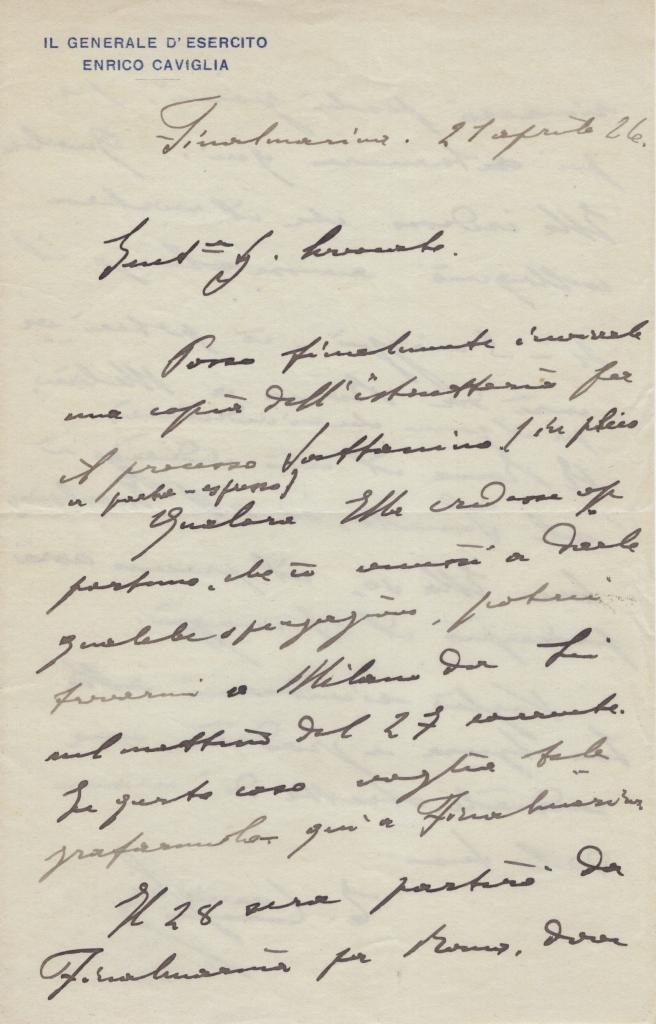 IL GENERALE D'ESERCITO
ENRICO CAVIGLIA
Finalmarina. 21 aprile 26.
Avvocato.
Posso finalmente inviarle
una copia dell'istruttoria per
il processo (in plico
a parte-espresso)
Qualora Ella credesse op
portuno, che io venissi a darle
qualche spiegazione, potrei
trovarmi a Milano da Lei
nel mattino del 27 corrente.
In questo caso voglia tele
grafarmelo qui a Finalmarina
Il 28 sera partirò da
Finalmarina per Roma, dove